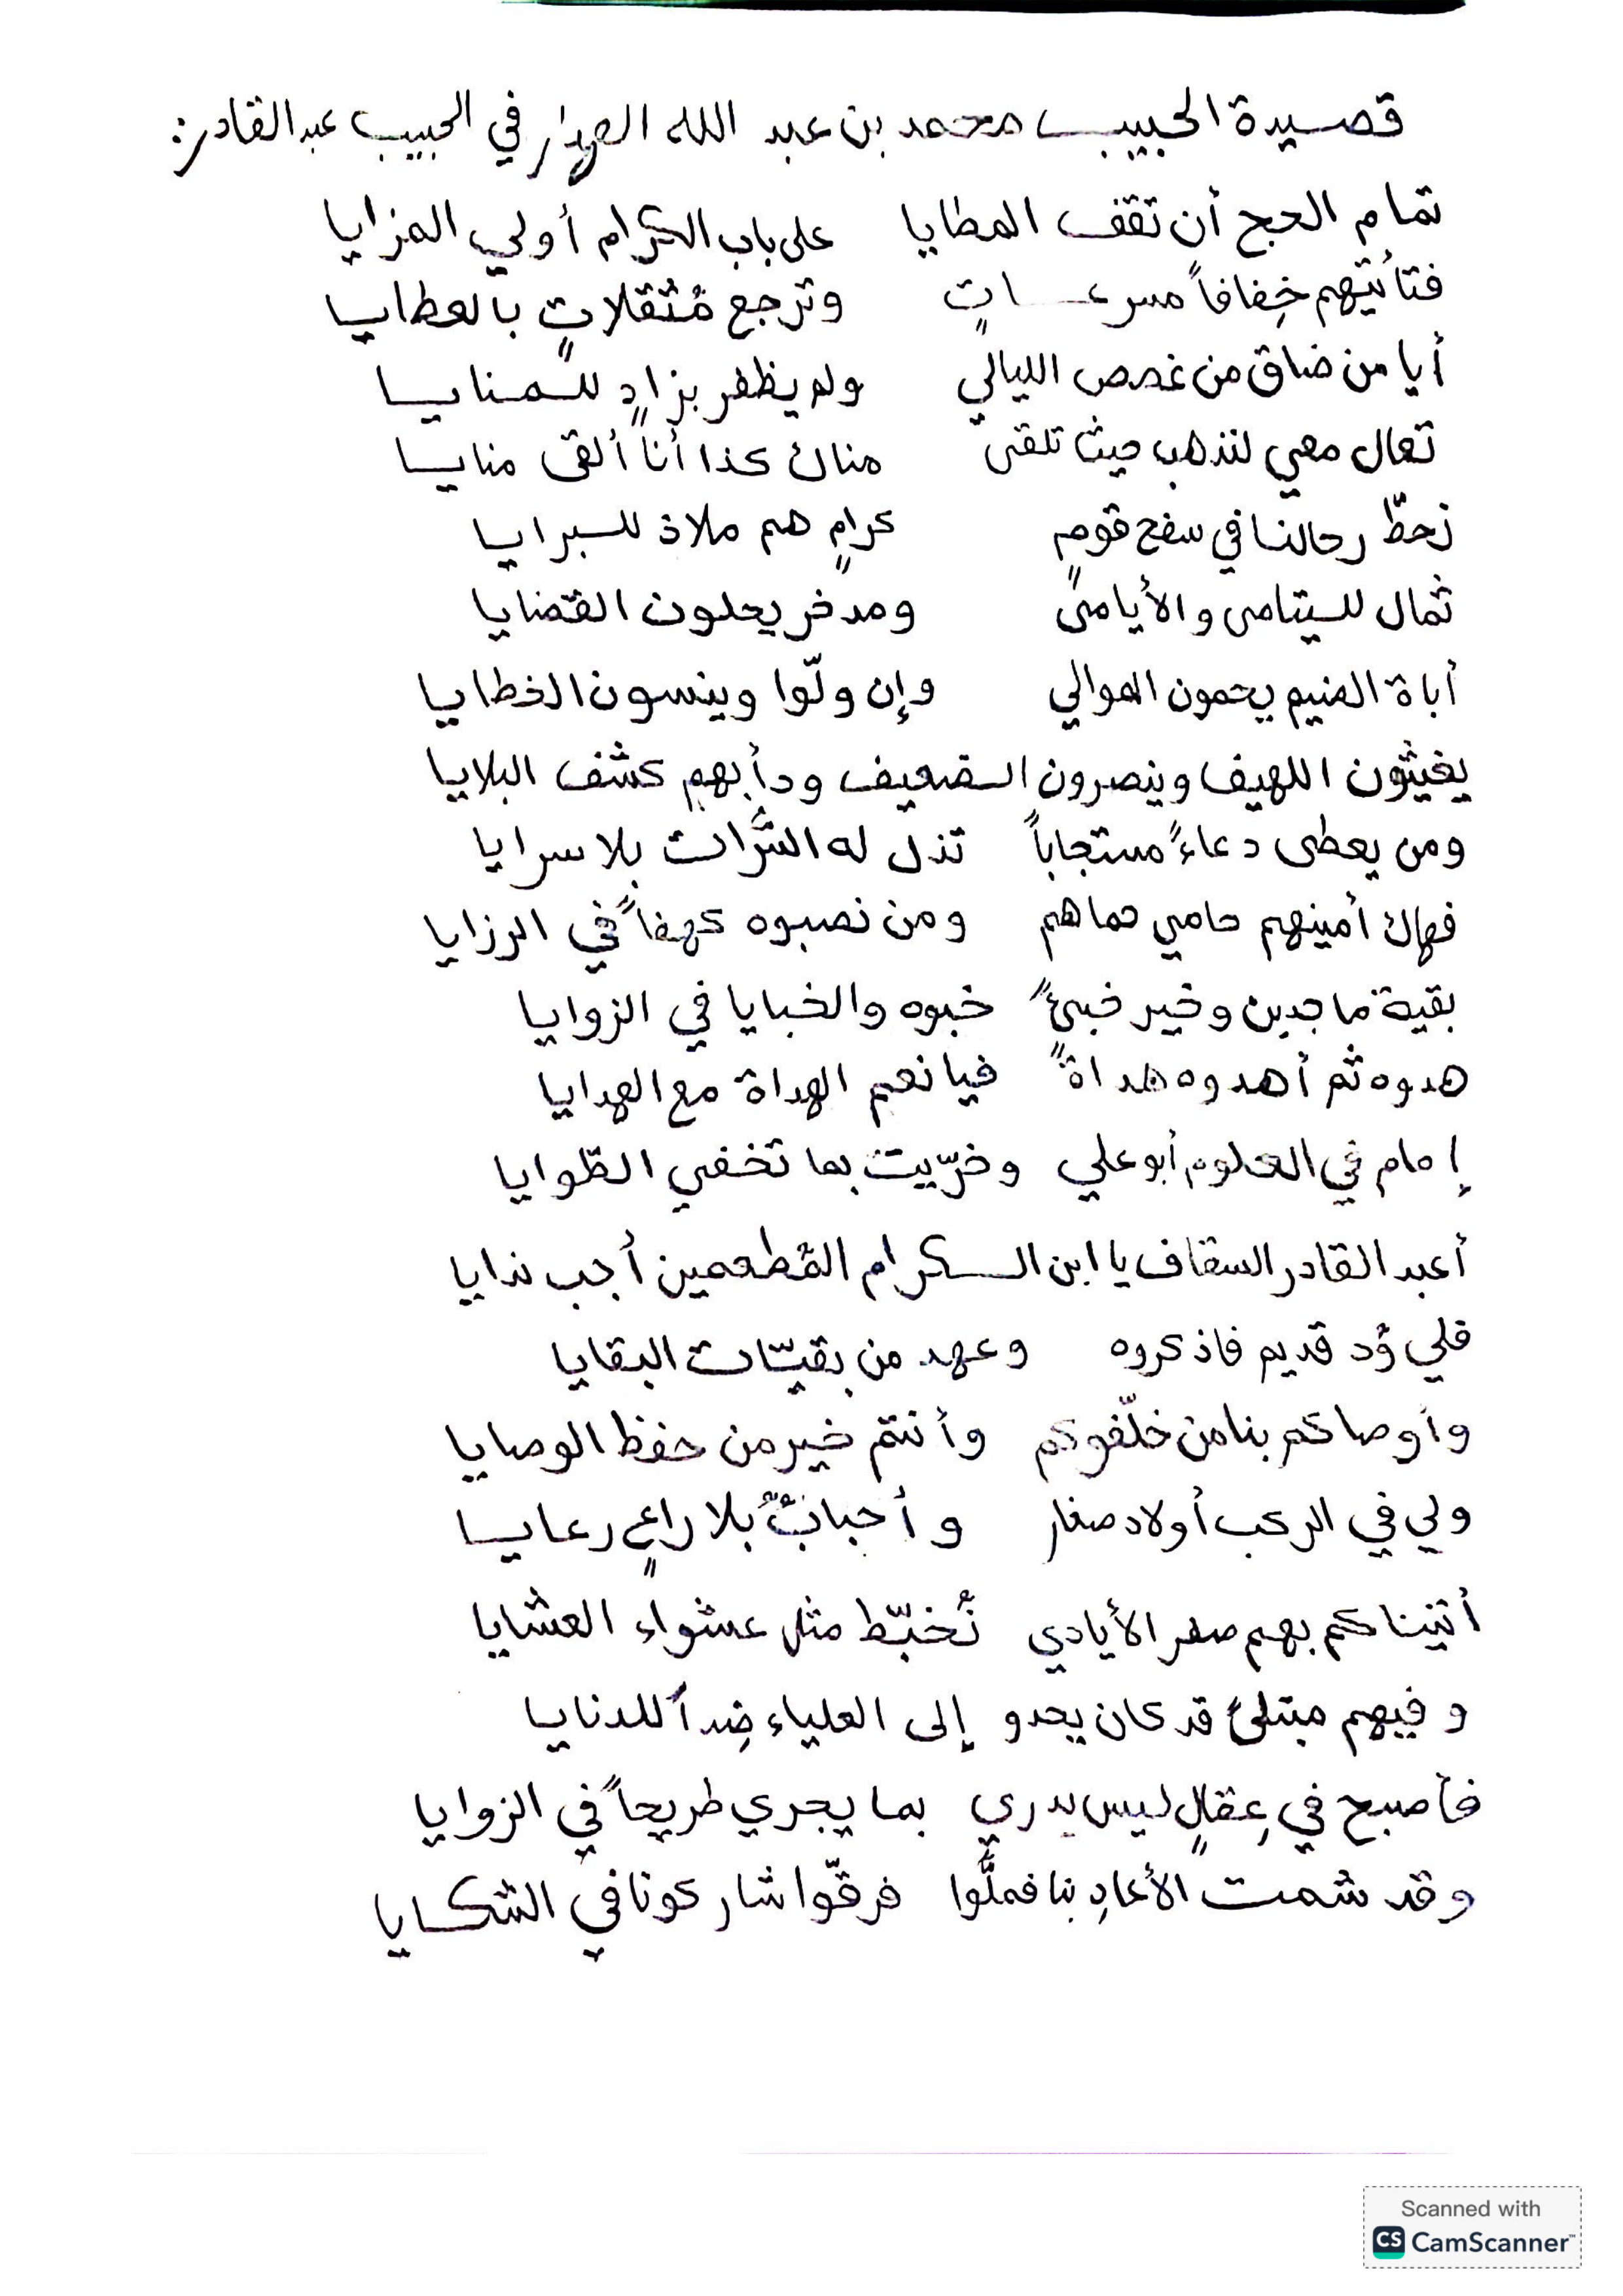 قصيدة الحبيب محمد بن عبد الله الهدار في الحبيب عبد القادر:
تمام الحج أن تقف المطايا على باب الكرام أولي المزايا
فتأتيهم خِفافاً مسرعاتٍ وترجع مُثقلاتٍ بالعطايا
أيا من ضاق من غصص الليالي ولم يظفر بزادٍ للمنايا
تعال معي لنذهب حيث تلقى مناك كذا أنا ألقى منايا
نحطّ رحالنا في سفح قومٍ كرامٍ هم ملاذ للبرايا
ثمال لليتامى والأيامى ومدخر يحلون القضايا
أباة الضيم يحمون الموالي وإن ولّوا وينسون الخطايا
يغيثون اللهيف وينصرون الضعيف ودأبهم كشف البلايا
ومن يعطى دعاءً مستجاباً تذل له السُّراة بلا سرايا
فهاك أمينهم حامي حماهم ومن نصبوه كهفاً في الرزايا
بقية ماجدين وخير خبئٍ خبوه والخبايا في الزوايا
هدوه ثم أهدوه هداةً فيا نعم الهداة مع الهدايا
إمام في العلوم أبو علي وخرّيت بما تخفي الطّوايا
أعبد القادر السقاف يا ابن الكرام المُطعمين أجب ندايا
فلي وُد قديم فاذكروه وعهد من بقيّات البقايا
وأوصاكم بنا من خلّفوكم وأنتم خير من حفظ الوصايا
ولي في الركب أولاد صغار وأحبابٌ بلا راعٍ رعايا
أتيناكم بهم صفر الأيادي نُخبّط مثل عشواء العشايا
وفيهم مبتلىً قد كان يحدو إلى العلياء ضِداً للدنايا
فأصبح في عِقالٍ ليس يدري بما يجري طريحاً في الزوايا
وقد شمت الأعادِ بنا فملُّوا فرقّوا شاركونا في الشكايا
Scanned with
CS CamScanner